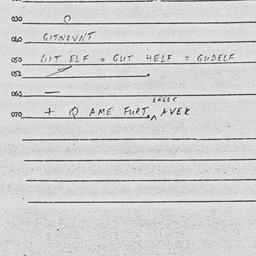 030 O
040 GITNOUNT
050 GIT ELF = GUT HELF = GUDELF
051
060 —
EAGER
070 + Q AME FURT, AVEK